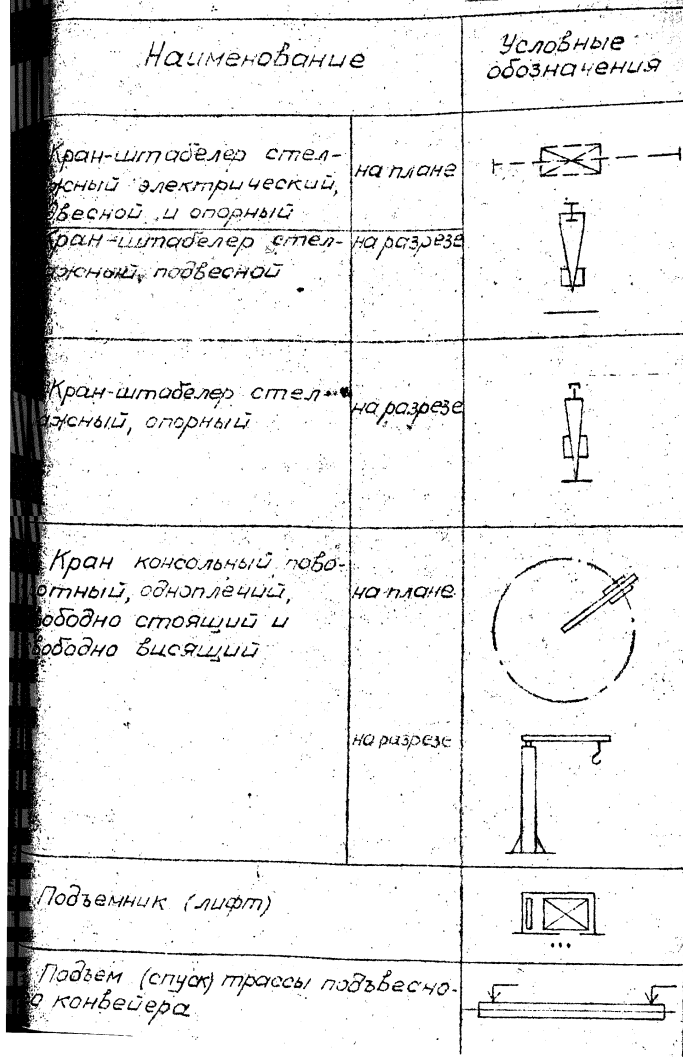 Наименование
Условные
обозначения
Кран-штабелер стел-
жный электрический,
весной и опорный
на плане
Кран-штабелер стел-
ажный, подвесной
на разрезе
Кран-штабелер стел-
ажный, опорный
на разрезе
Кран консольный пово-
отный, одноплечий,
ободно стоящий и
ободно висящий
на плане
на разрезе
Подъемник (лифт)
Подъем (спуск) трассы подъвесно-
о конвейера